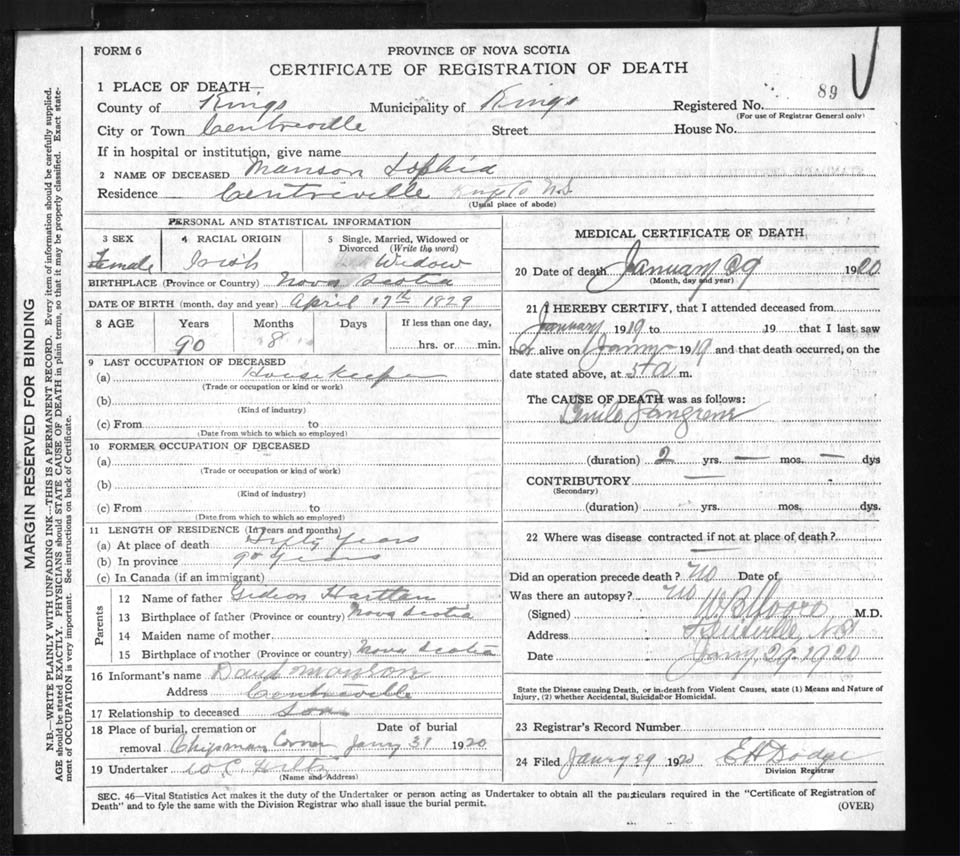 FORM 6
PROVINCE OF NOVA SCOTIA
CERTIFICATE OF REGISTRATION OF DEATH
1 PLACE OF DEATH
County of Kings Municipality of Kings Registered No. 89
(For use of Registrar General only)
City or Town Centreville Street House No.
If in hospital or institution, give name
2 NAME OF DECEASED Manson Sophia
Residence Centreville Kings Co N.S.
(Usual place of abode)
PERSONAL AND STATISTICAL INFORMATION
3 SEX 4 RACIAL ORIGIN 5 Single, Married, Widowed or Divorced (Write the word)
Female Irish Widow
BIRTHPLACE (Province or Country) Nova Scotia
DATE OF BIRTH (month, day and year) April 17th 1829
8 AGE Years Months Days If less than one day,
90 8 hrs. or min.
9 LAST OCCUPATION OF DECEASED
(a) Housekeeper
(Trade or occupation or kind or work)
(b)
(Kind of industry)
(c) From to
(Date from which to which so employed)
10 FORMER OCCUPATION OF DECEASED
(a)
(Trade or occupation or kind of work)
(b)
(Kind of industry)
(c) From to
(Date from which to which so employed)
11 LENGTH OF RESIDENCE (In years and months)
(a) At place of death Fifty Years
(b) In province 90 Years
(c) In Canada (if an immigrant)
Parents
12 Name of father Gideon Harttan
13 Birthplace of father (Province or country) Nova Scotia
14 Maiden name of mother
15 Birthplace of mother (Province or country) Nova Scotia
16 Informant's name David Manson
Address Centreville
17 Relationship to deceased Son
18 Place of burial, cremation or removal Date of burial
Chipman Corner Jany 31 1920
19 Undertaker W C Hiltz
(Name and Address)
MEDICAL CERTIFICATE OF DEATH
20 Date of death January 29 1920
(Month, day and year)
21 I HEREBY CERTIFY, that I attended deceased from
January 1919 to 19 that I last saw
her alive on Jany 1919 and that death occurred, on the
date stated above, at 5 a m.
The CAUSE OF DEATH was as follows:
Senile Gangrene
(duration) 2 yrs. — mos. — dys
CONTRIBUTORY —
(Secondary)
(duration) yrs. mos. dys.
22 Where was disease contracted if not at place of death?
—
Did an operation precede death? No Date of
Was there an autopsy? No
(Signed) W B Moore M.D.
Address Kentville, N.S
Date Jany 29 1920
State the Disease causing Death, or in death from Violent Causes, state (1) Means and Nature of
Injury, (2) whether Accidental, Suicidal or Homicidal.
23 Registrar's Record Number
24 Filed Janry 29 1920 E H Dodge
Division Registrar
SEC. 46—Vital Statistics Act makes it the duty of the Undertaker or person acting as Undertaker to obtain all the particulars required in the "Certificate of Registration of
Death" and to fyle the same with the Division Registrar who shall issue the burial permit.
(OVER)
MARGIN RESERVED FOR BINDING
N.B.—WRITE PLAINLY WITH UNFADING INK—THIS IS A PERMANENT RECORD. Every item of information should be carefully supplied.
AGE should be stated EXACTLY. PHYSICIANS should STATE CAUSE OF DEATH in plain terms, so that it may be properly classified. Exact state-
ment of OCCUPATION is very important. See instructions on back of Certificate.